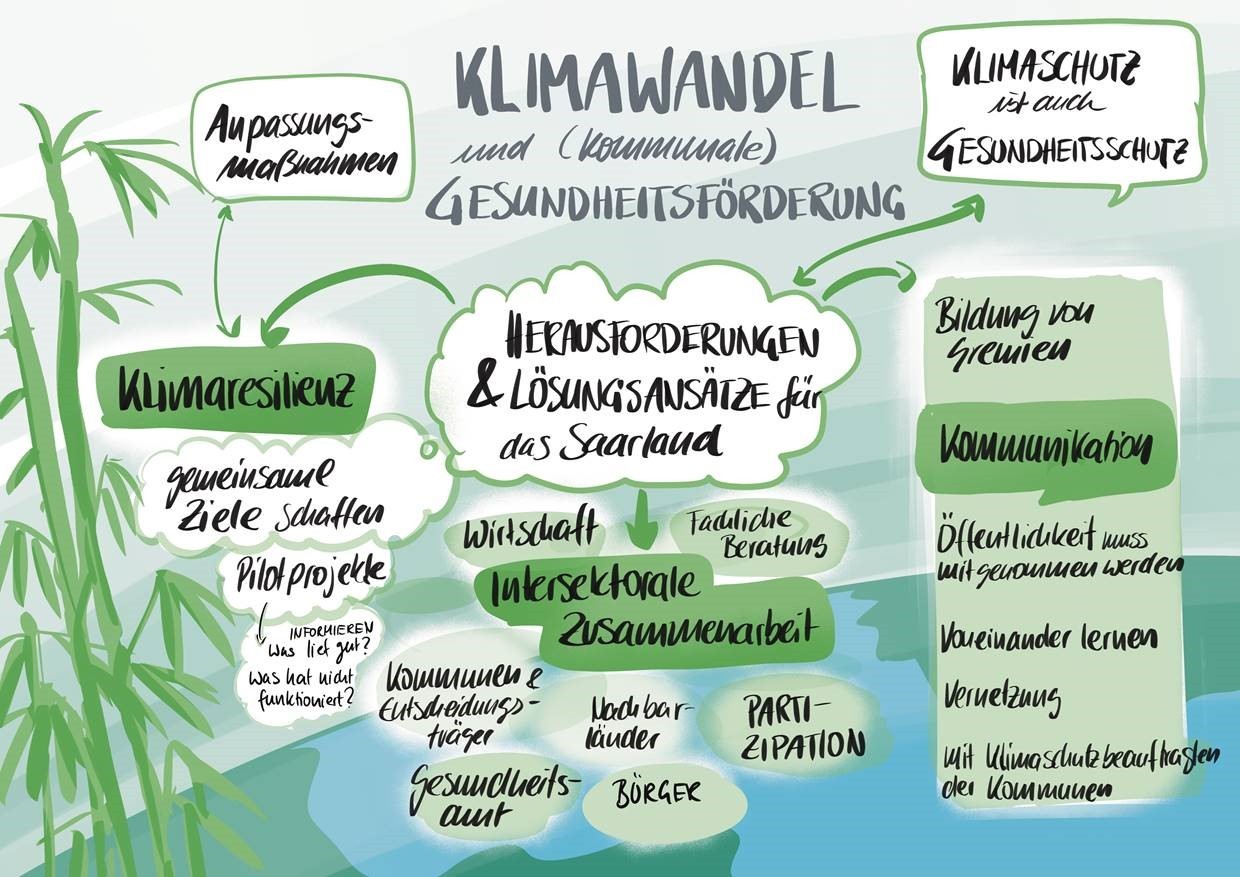 KLIMAWANDEL
und (kommunale)
GESUNDHEITSFÖRDERUNG
Anpassungs-
maßnahmen
KLIMASCHUTZ
ist auch
GESUNDHEITSSCHUTZ
HERAUSFORDERUNGEN
& LÖSUNGSANSÄTZE für
das Saarland
Klimaresilienz
gemeinsame
Ziele schaffen
Pilotprojekte
INFORMIEREN
Was lief gut?
Was hat nicht
funktioniert?
Wirtschaft
Fachliche
Beratung
Intersektorale
Zusammenarbeit
Kommunen &
Entscheidungs-
träger
Nachbar-
länder
PARTI-
ZIPATION
Gesundheits-
amt
BÜRGER
Bildung von
Gremien
Kommunikation
Öffentlichkeit muss
mitgenommen werden
Voneinander lernen
Vernetzung
mit Klimaschutzbeauftragten
der Kommunen